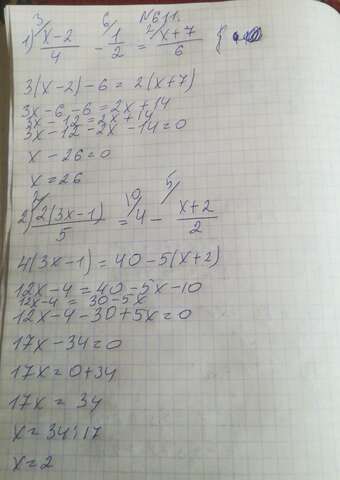 №611.
1) 3/ x-2/4 - 6/ 1/2 = 2/ x+7/6
3(x-2)-6=2(x+7)
3x-6-6=2x+14
3x-12=2x+14
3x-12-2x-14=0
x-26=0
x=26
2) 2/ 2(3x-1)/5 = 10/ 4 - 5/ x+2/2
4(3x-1)=40-5(x+2)
12x-4=40-5x-10
12x-4=30-5x
12x-4-30+5x=0
17x-34=0
17x=0+34
17x=34
x=34:17
x=2